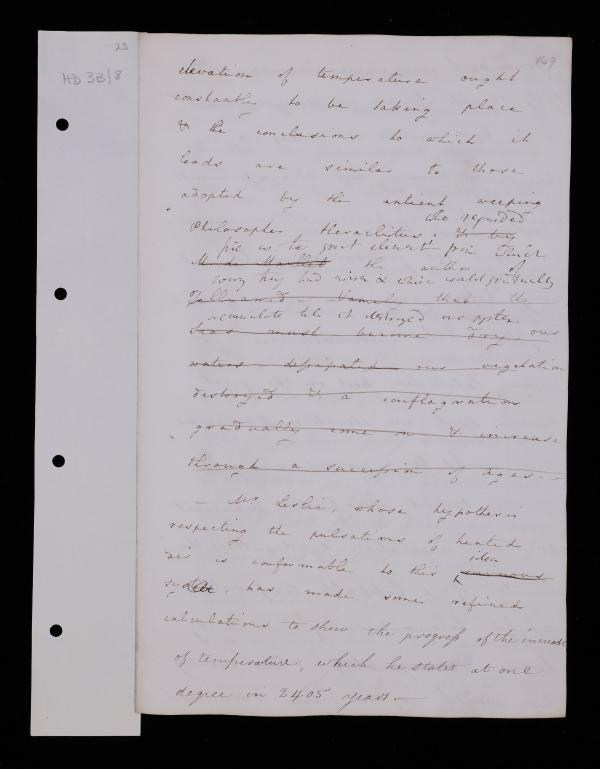 23
HD 3B/8
149
elevation of temperature ought
constantly to be taking place
& the conclusions to which it
leads are similar to those
adopted by the antient weeping
who regarded
Philosopher Heraclitus. & by
fire as the great element from which
M. de Maillet the author of
every thing had arisen & which would gradually
Telliamed. Namely that the
accumulate till it destroyed our system
Seas must become dry, our
waters dissipated our vegetation
destroyed & a conflagration
gradually come on & increase
through a succession of ages. —
— Mr. Leslie, whose hypothesis
respecting the pulsations of heated
idea
air is conformable to this
system, has made some refined
calculations to shew the progress of the increase
of temperature, which he states at one
degree in 2405 years —